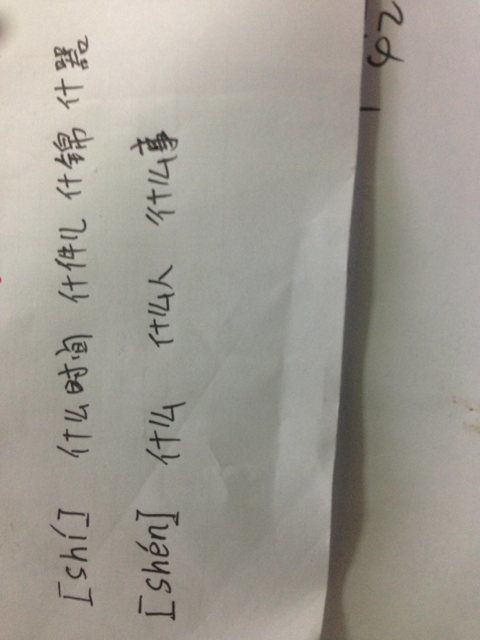 [shí] 什么时间 什件儿 什锦 什器
[shén] 什么 什么人 什么事